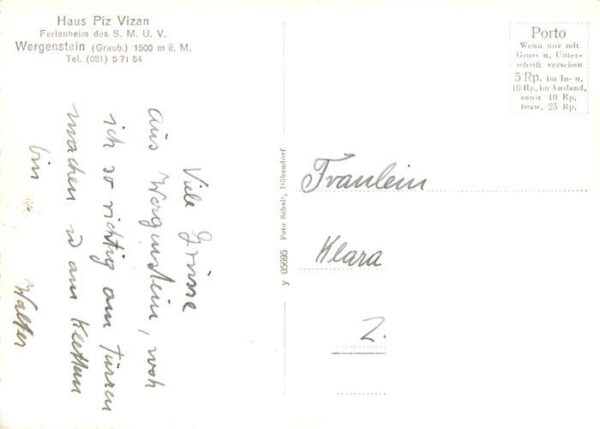 Haus Piz Vizan
Ferienheim des S. M. U. V.
Wergenstein (Graub.) 1500 m ü. M.
Tel. (081) 5 71 54
Viele Grüsse
aus Wergenstein, woh
ich so richtig am Türren
machen u am Klettern
bin
Walter
y 05695 Foto Schair, Dübendorf
Porto
Wenn nur mit
Gruss u. Unter-
schrift versehen
5 Rp. im In- u,
10 Rp. im Ausland,
sonst 10 Rp.
bezw. 25 Rp.
Fraulein
Klara
Z.